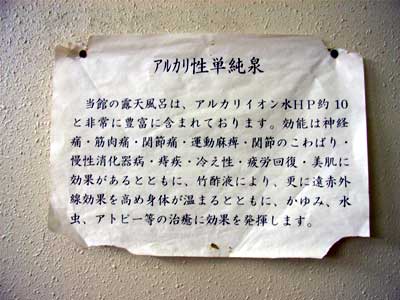 アルカリ性単純泉
当館の露天風呂は、アルカリイオン水HP約10
と非常に豊富に含まれております。効能は神経
痛・筋肉痛・関節痛・運動麻痺・関節のこわばり・
慢性消化器病・痔疾・冷え性・疲労回復・美肌に
効果があるとともに、竹酢液により、更に遠赤外
線効果を高め身体が温まるとともに、かゆみ、水
虫、アトピー等の治癒に効果を発揮します。